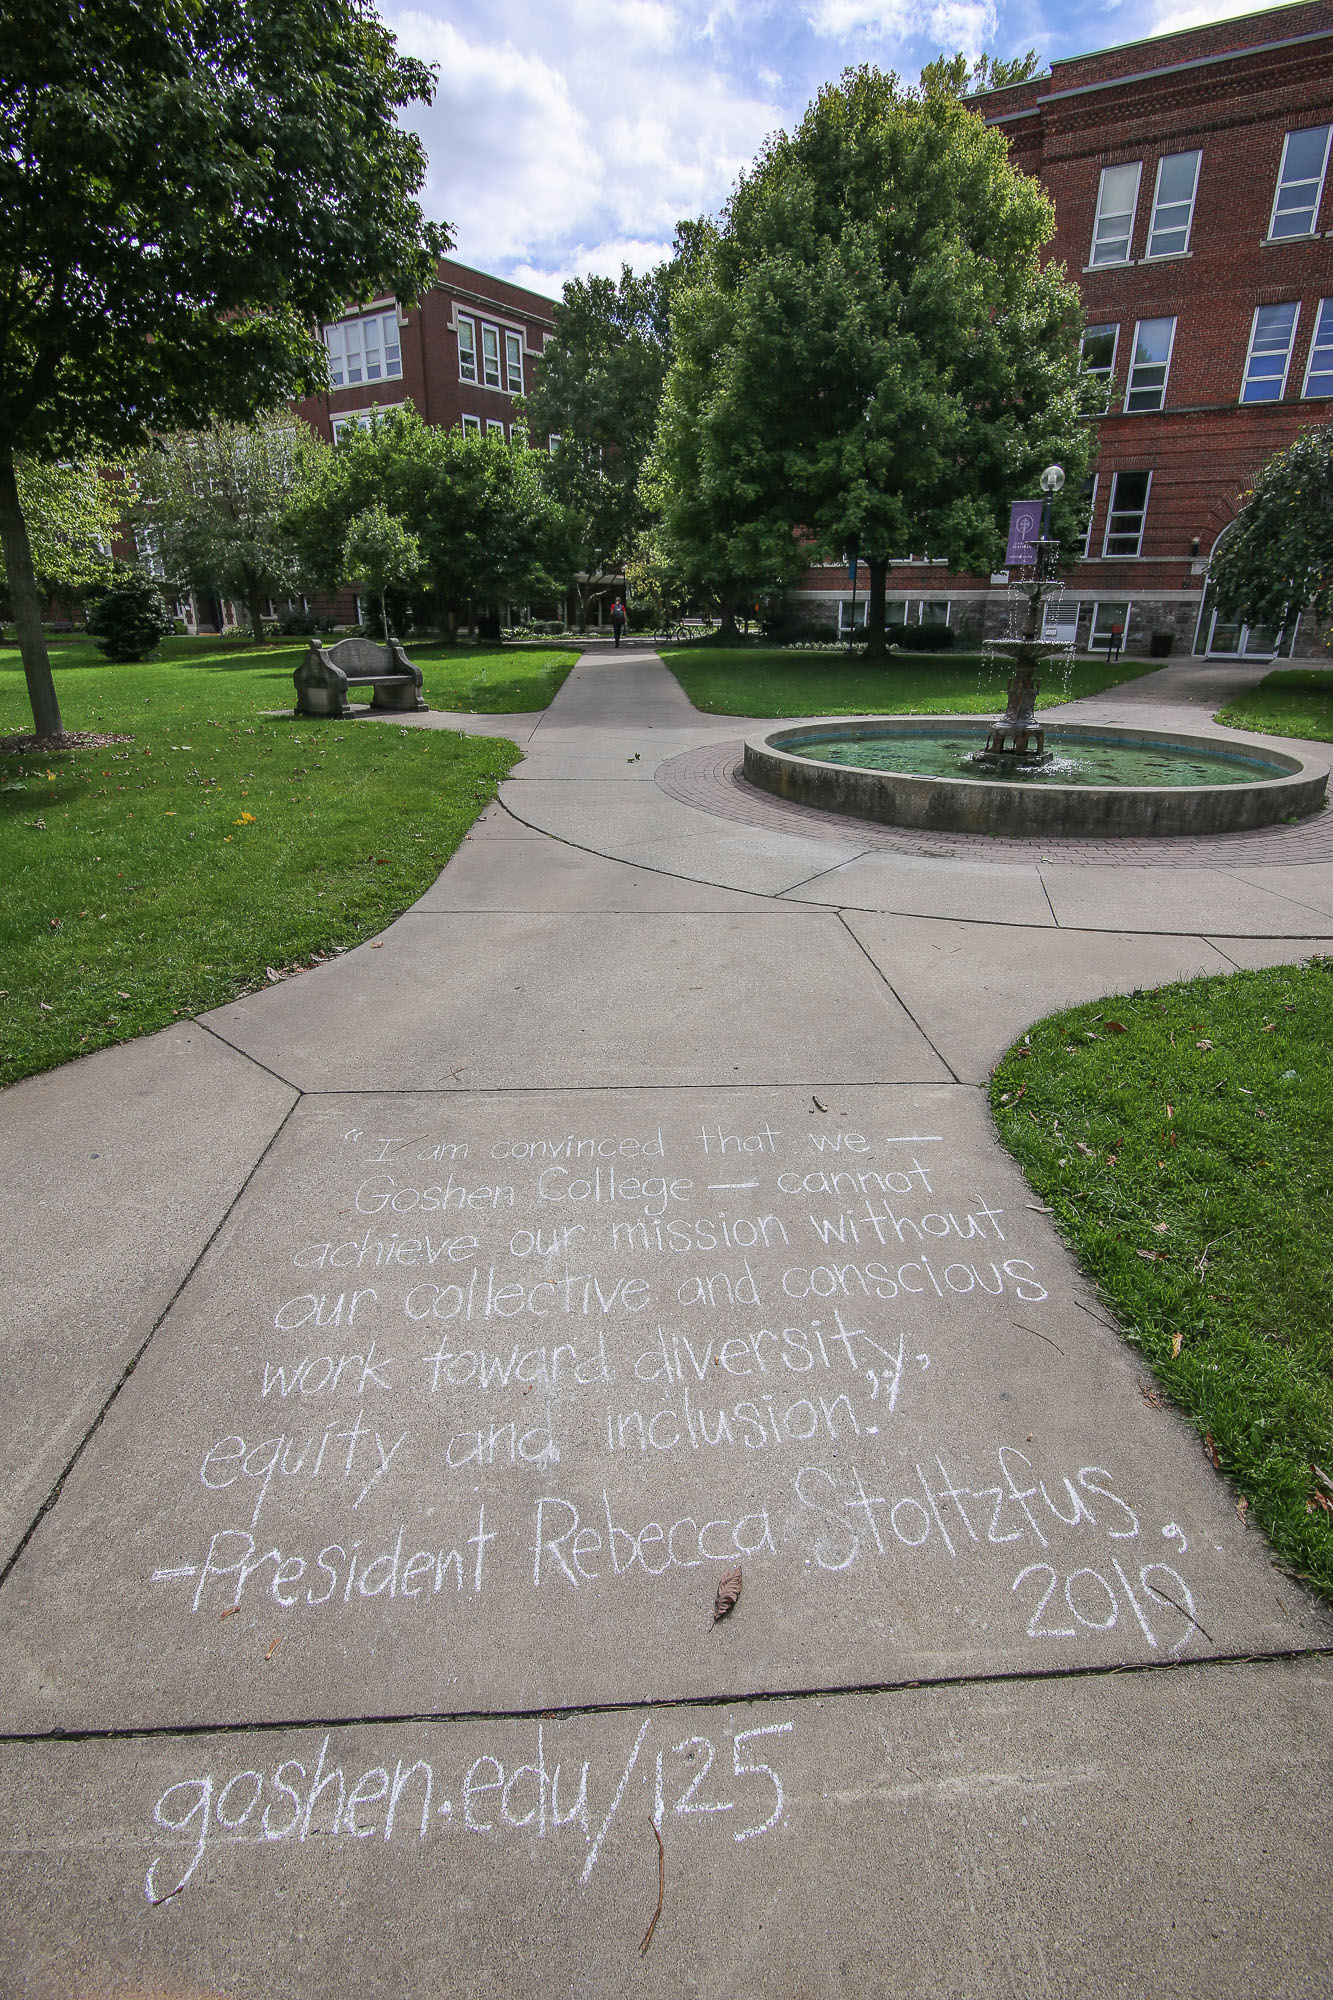 "I am convinced that we —
Goshen College — cannot
achieve our mission without
our collective and conscious
work toward diversity,
equity and inclusion."
-President Rebecca Stoltzfus,
2019
goshen.edu/125